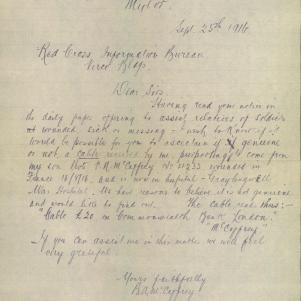 Sept. 25th 1916
Red Cross Information Bureau
Verco Bldgs.
Dear Sirs
Having read your notice in
the daily paper offering to assist relatives of soldiers
wounded, sick or missing – I wish to know if it
would be possible for you to ascertain if genuine
or not a cable received by me, purporting to come from
my son Pvt. McCaffrey wounded in
France and is now in hospital –
War Hospital. We have reasons to believe it is not genuine
and would like to find out. The cable reads thus: –
"Cable £20 in Commonwealth Bank London."
"McCaffrey"
If you can assist me in this matter we will feel
very grateful.
Yours faithfully
McCaffrey